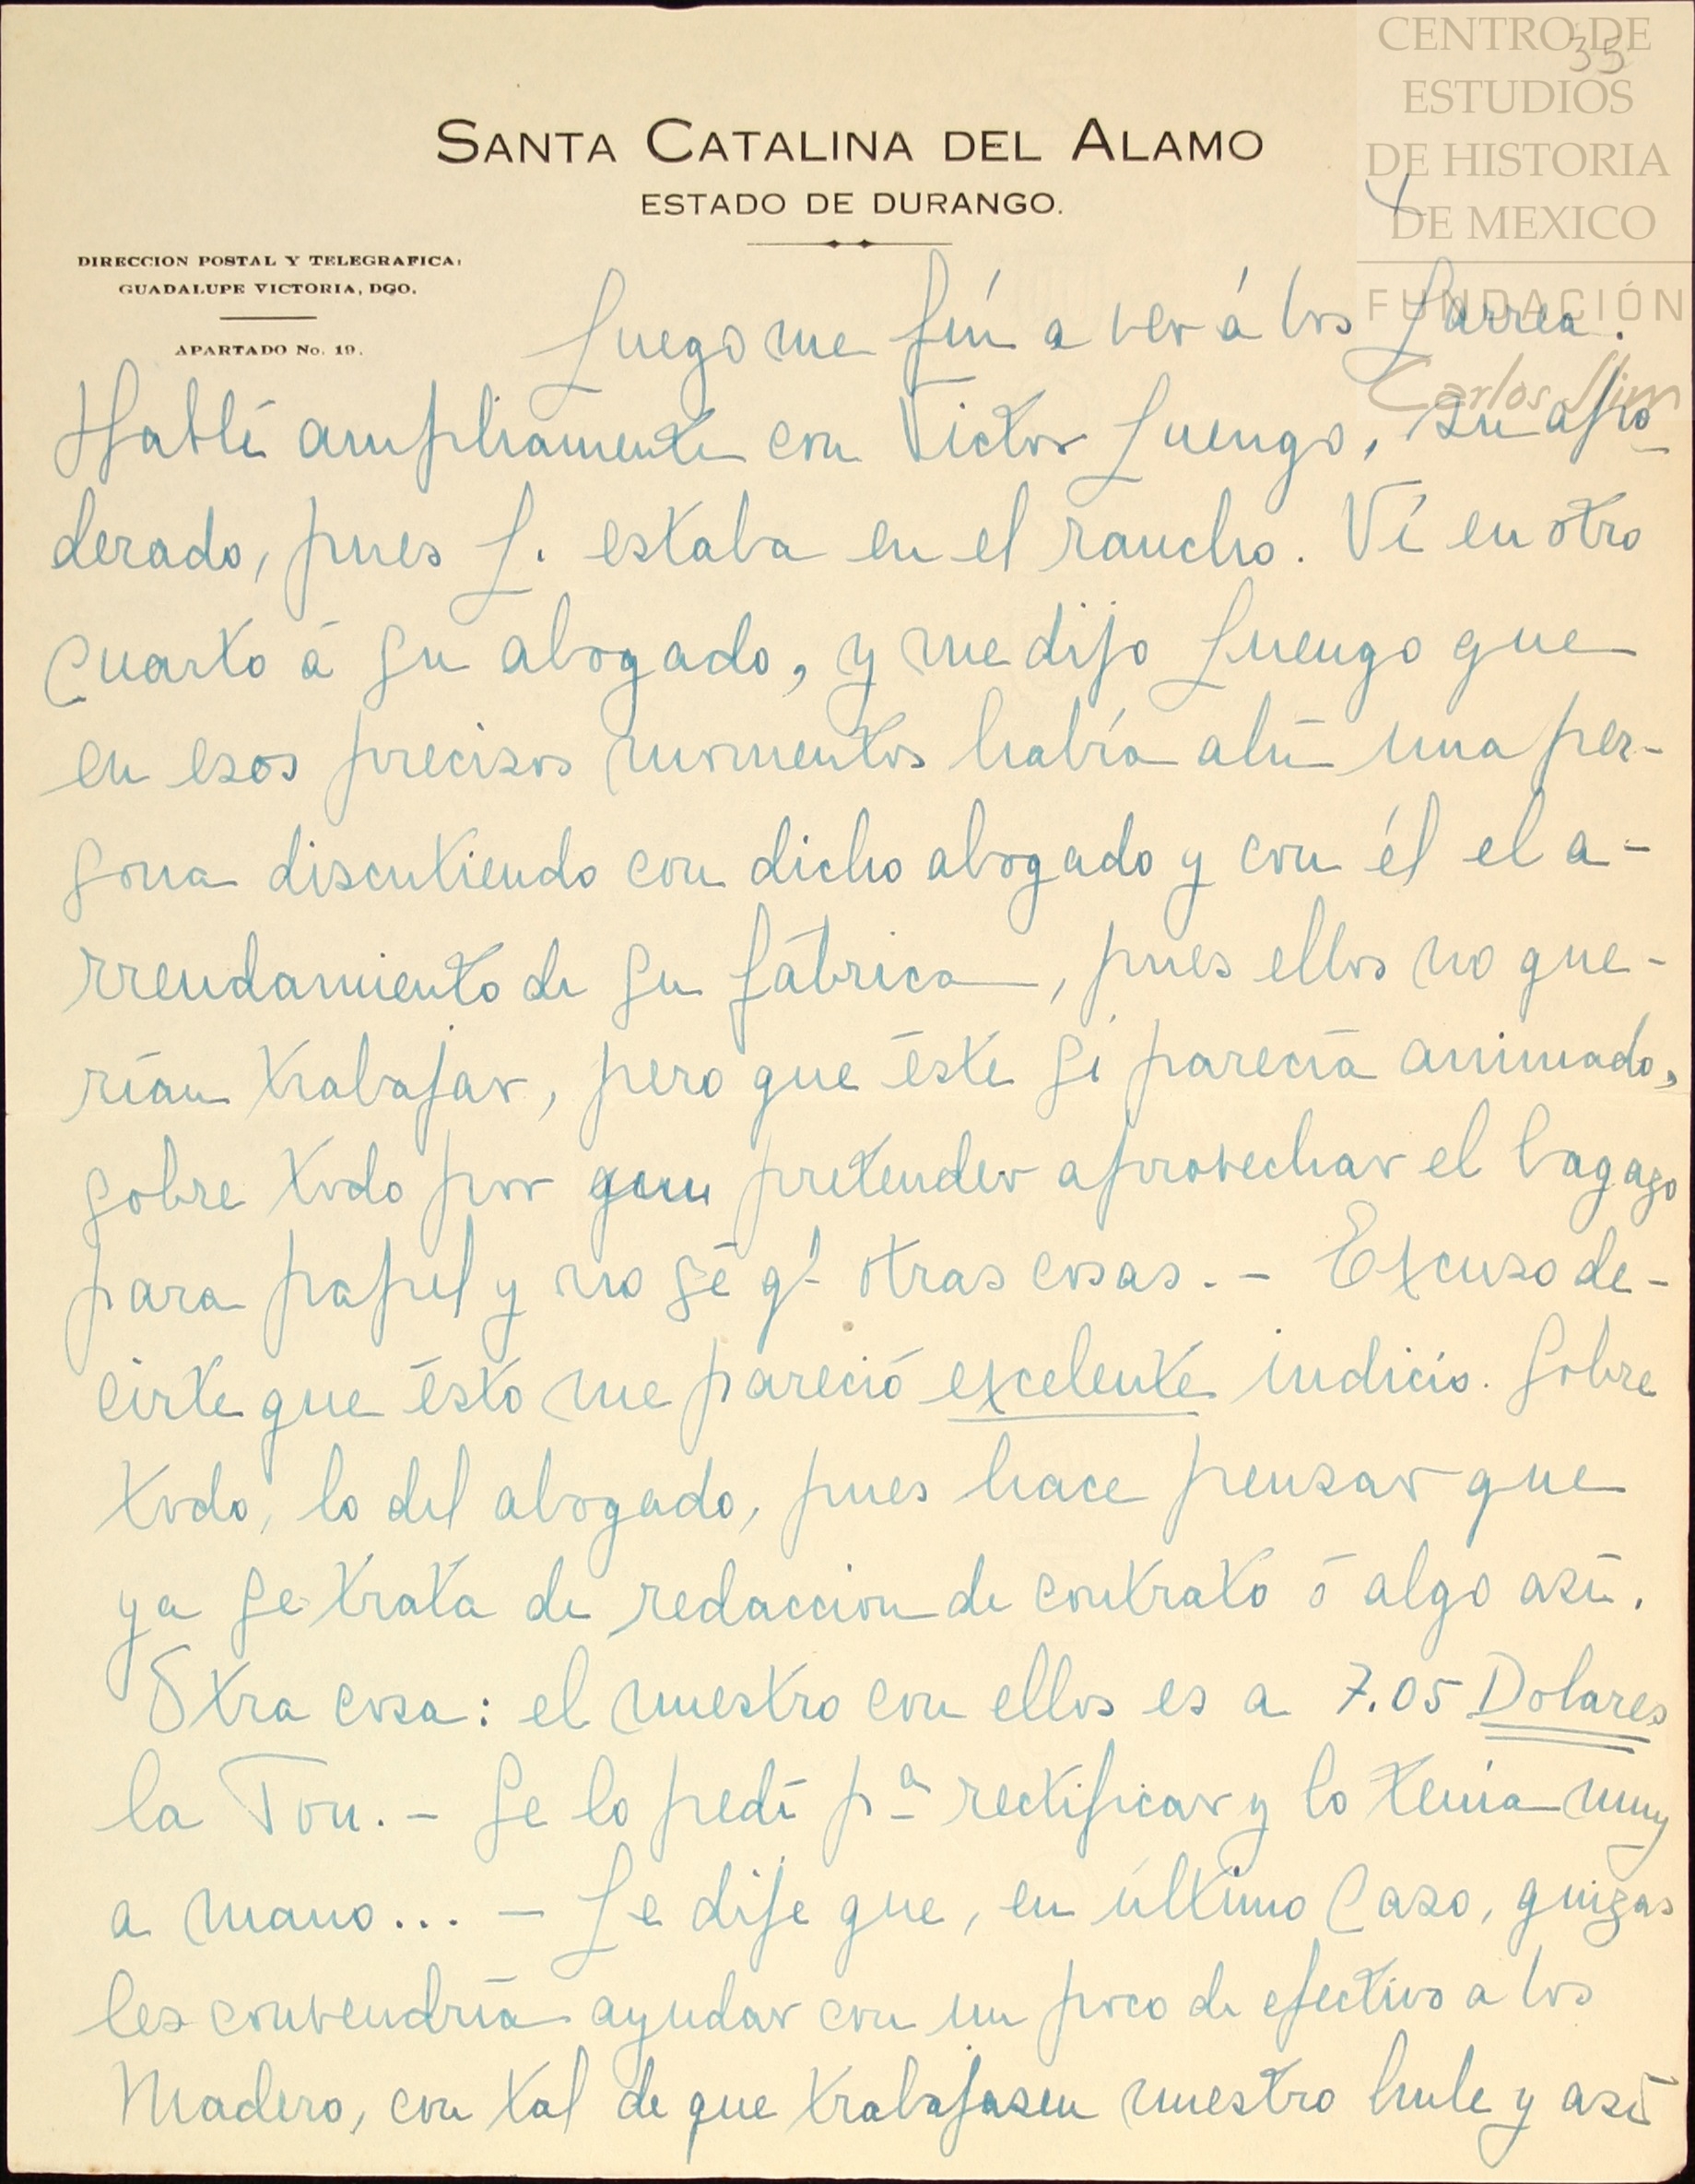 CENTRO DE
ESTUDIOS
DE HISTORIA
DE MEXICO
FUNDACIÓN
Carlos Slim
35
SANTA CATALINA DEL ALAMO
ESTADO DE DURANGO.
DIRECCION POSTAL Y TELEGRAFICA:
GUADALUPE VICTORIA, DGO.
APARTADO No. 19.
Luego me fuí a ver á los Larrea.
Hablé ampliamente con Victor Luengo, su apo-
derado, pues L. estaba en el rancho. Ví en otro
cuarto á su abogado, y me dijo Luengo que
en esos precisos momentos había ahí una per-
sona discutiendo con dicho abogado y con él el a-
rrendamiento de su fábrica, pues ellos no que-
rían trabajar, pero que éste sí parecía animado,
sobre todo por que pretender aprovechar el bagazo
para papel y no sé q! otras cosas. - Excuso de-
cirte que ésto me pareció excelente indicio. Sobre
todo, lo del abogado, pues hace pensar que
ya se trata de redaccion de contrato ó algo así.
Otra cosa: el nuestro con ellos es a 7.05 Dolares
la Ton. - Se lo pedí pª rectificar y lo tenía muy
a mano... - Le dije que, en último caso, quizas
les convendría ayudar con un poco de efectivo a los
Madero, con tal de que trabajasen nuestro hule y así